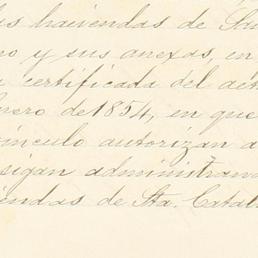 las haciendas de San
no y sus anexas, en
a certificada del act
enero de 1854, en que
vinculo autorizan a
sigan administran
iendas de Sta. Catal